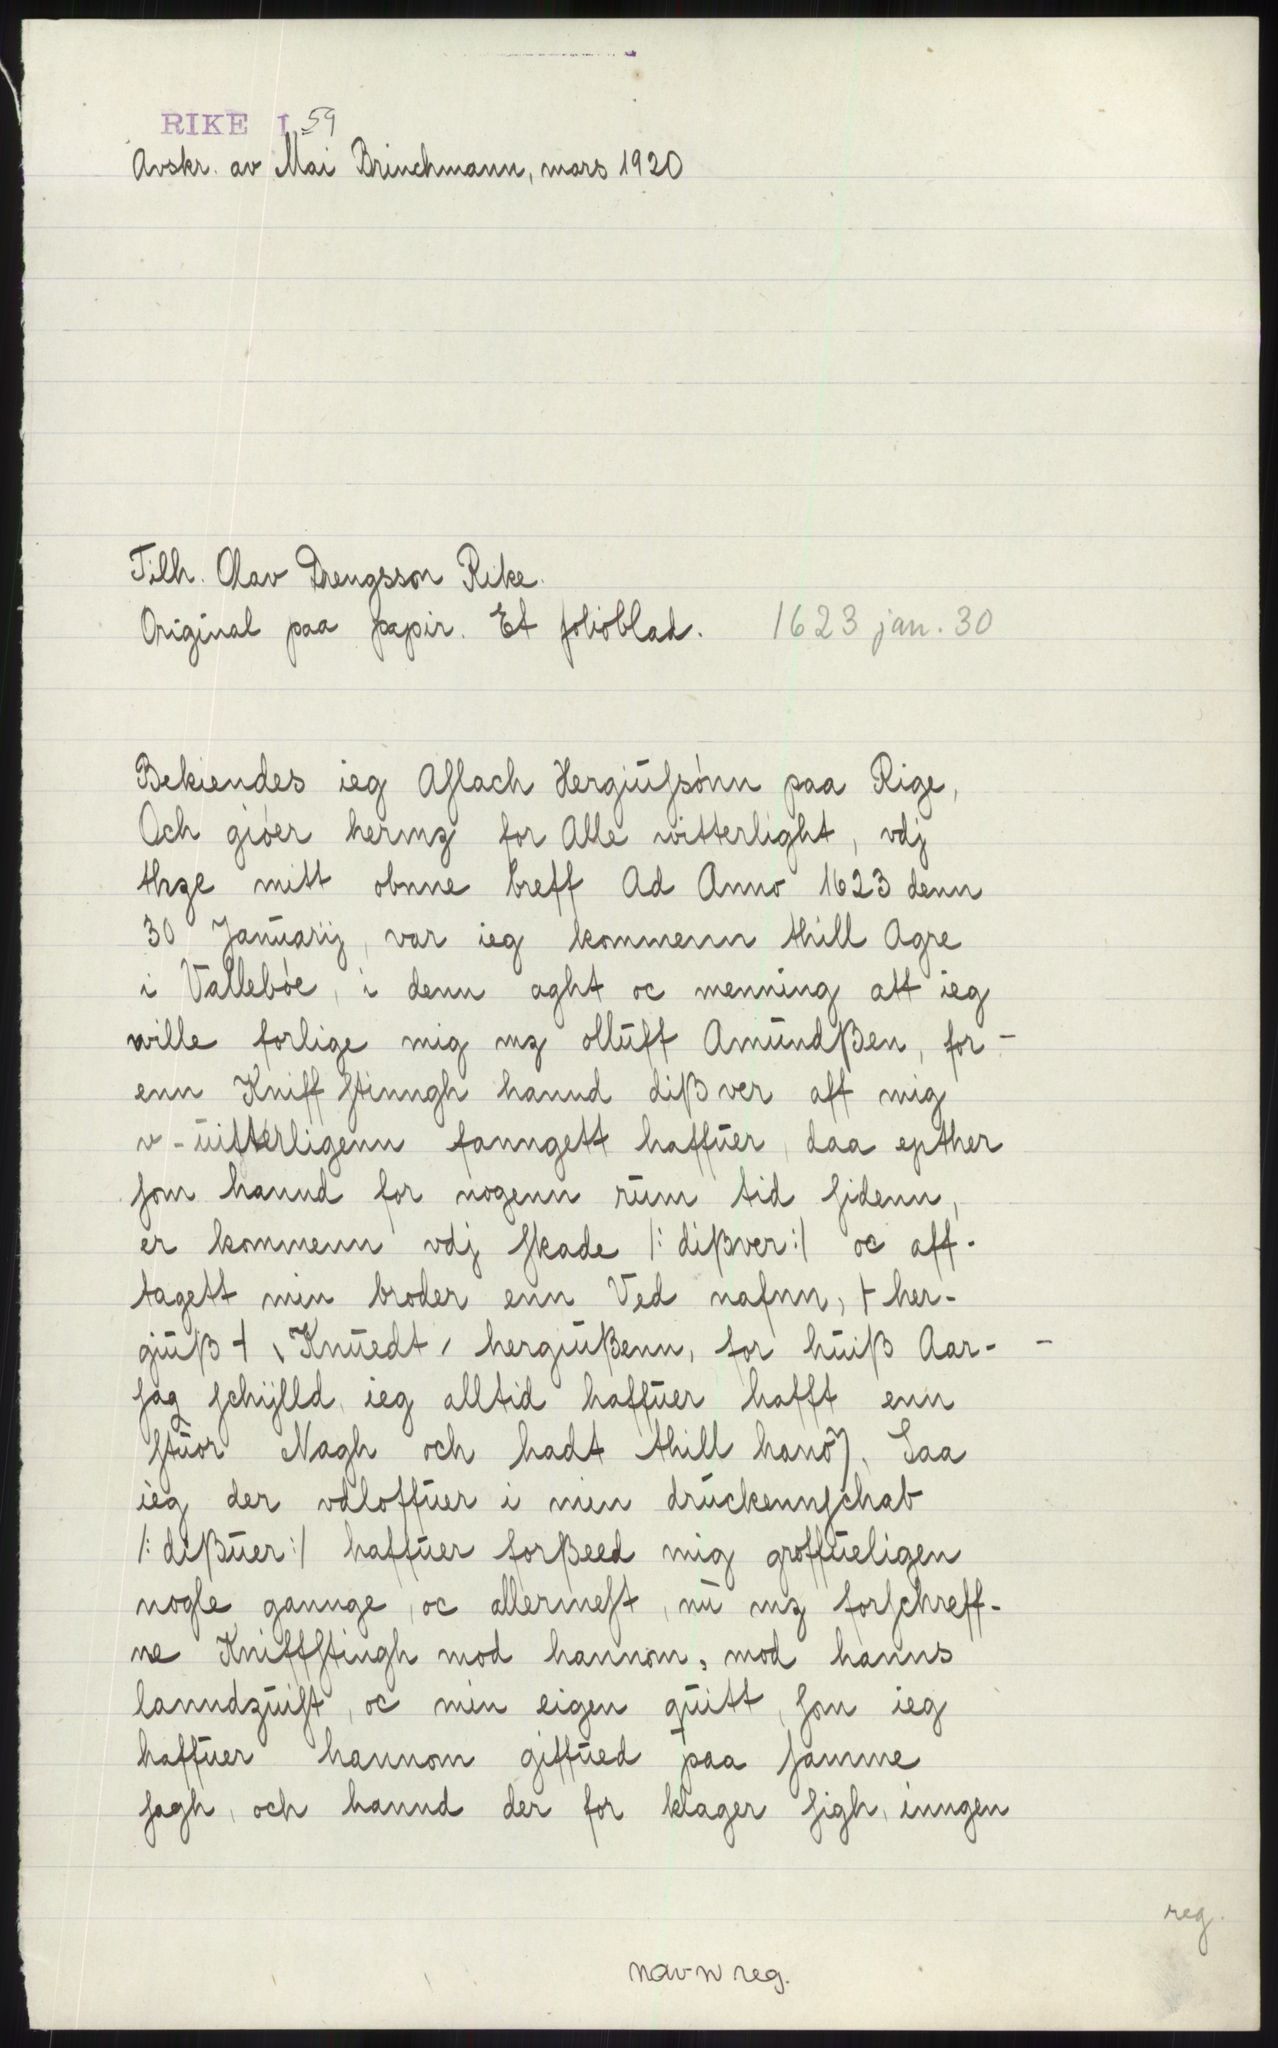 RIKE I 59
Avskr. av Mai Brinchmann, mars 1920
Tilh. Olav Drengsson Rike.
Original paa papir. Et folioblad. 1623 jan. 30
Bekiendes ieg Aſlach Hergiuſsønn paa Rige,
Och giøer hermz for Alle witterlight, vdj
thze mitt obnne breff Ad Anno 1623 denn
30 Januarij, var ieg kommenn thill Agre
i Vallebøe, i denn aght oc menning att ieg
wille forlige mig mz olluff Amundßen, for-
enn Kniff ſtinngh hannd dißver aff mig
v-uiſterligenn fanngett haffuer, daa epther
ſom hannd for nogenn rum tid ſidenn,
er kommenn vdj ſkade /: dißver :/ oc aff-
tagett min broder enn Ved nafnn, + her-
giuß + \ Knuedt / hergiußenn, for huiß Aar-
ſag ſchÿlld, ieg alltid haffuer hafft enn
ſtuor Nagh och hadt thill hanõ). Saa
ieg der vdloffuer i min druckennſchab
/: dißuer :/ haffuer forßeed mig groffueligen
nogle gannge, oc allermeſt, nu mz forſchreff-
ne Kniffſtingh mod hannom, mod hanns
lanndzuiſt, oc min eigen quitt, ſom ieg
haffuer hannom giffued paa ſamme
ſagh, och hannd der for klager ſigh, inngen
reg.
navn reg.